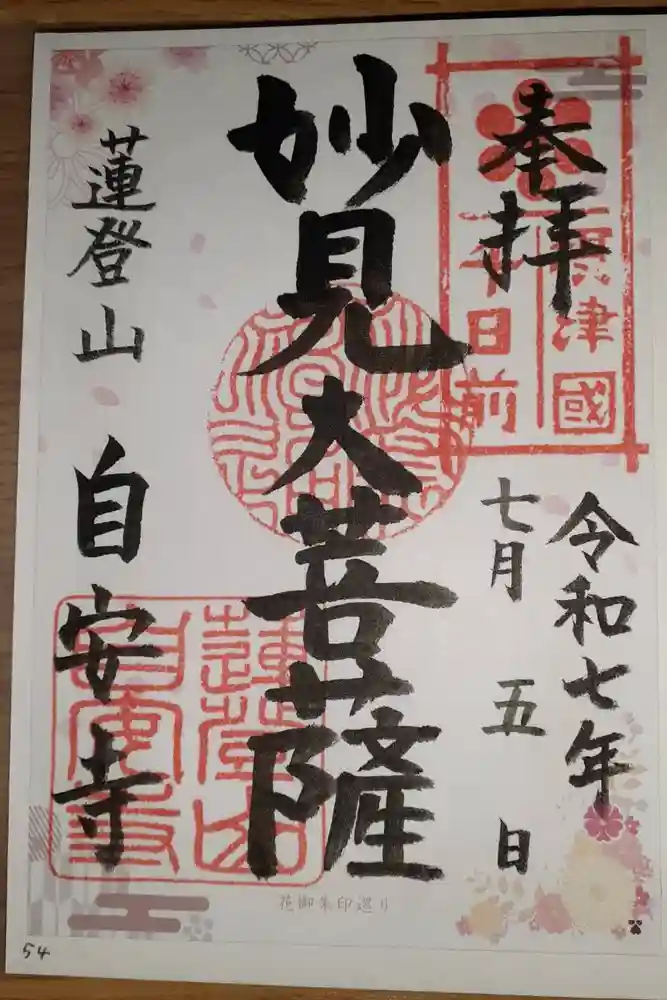 奉拝
令和七年
七月五日
妙見大菩薩
蓮登山
自安寺
津國
日前
蓮登山
自安寺
花御朱印巡り
54